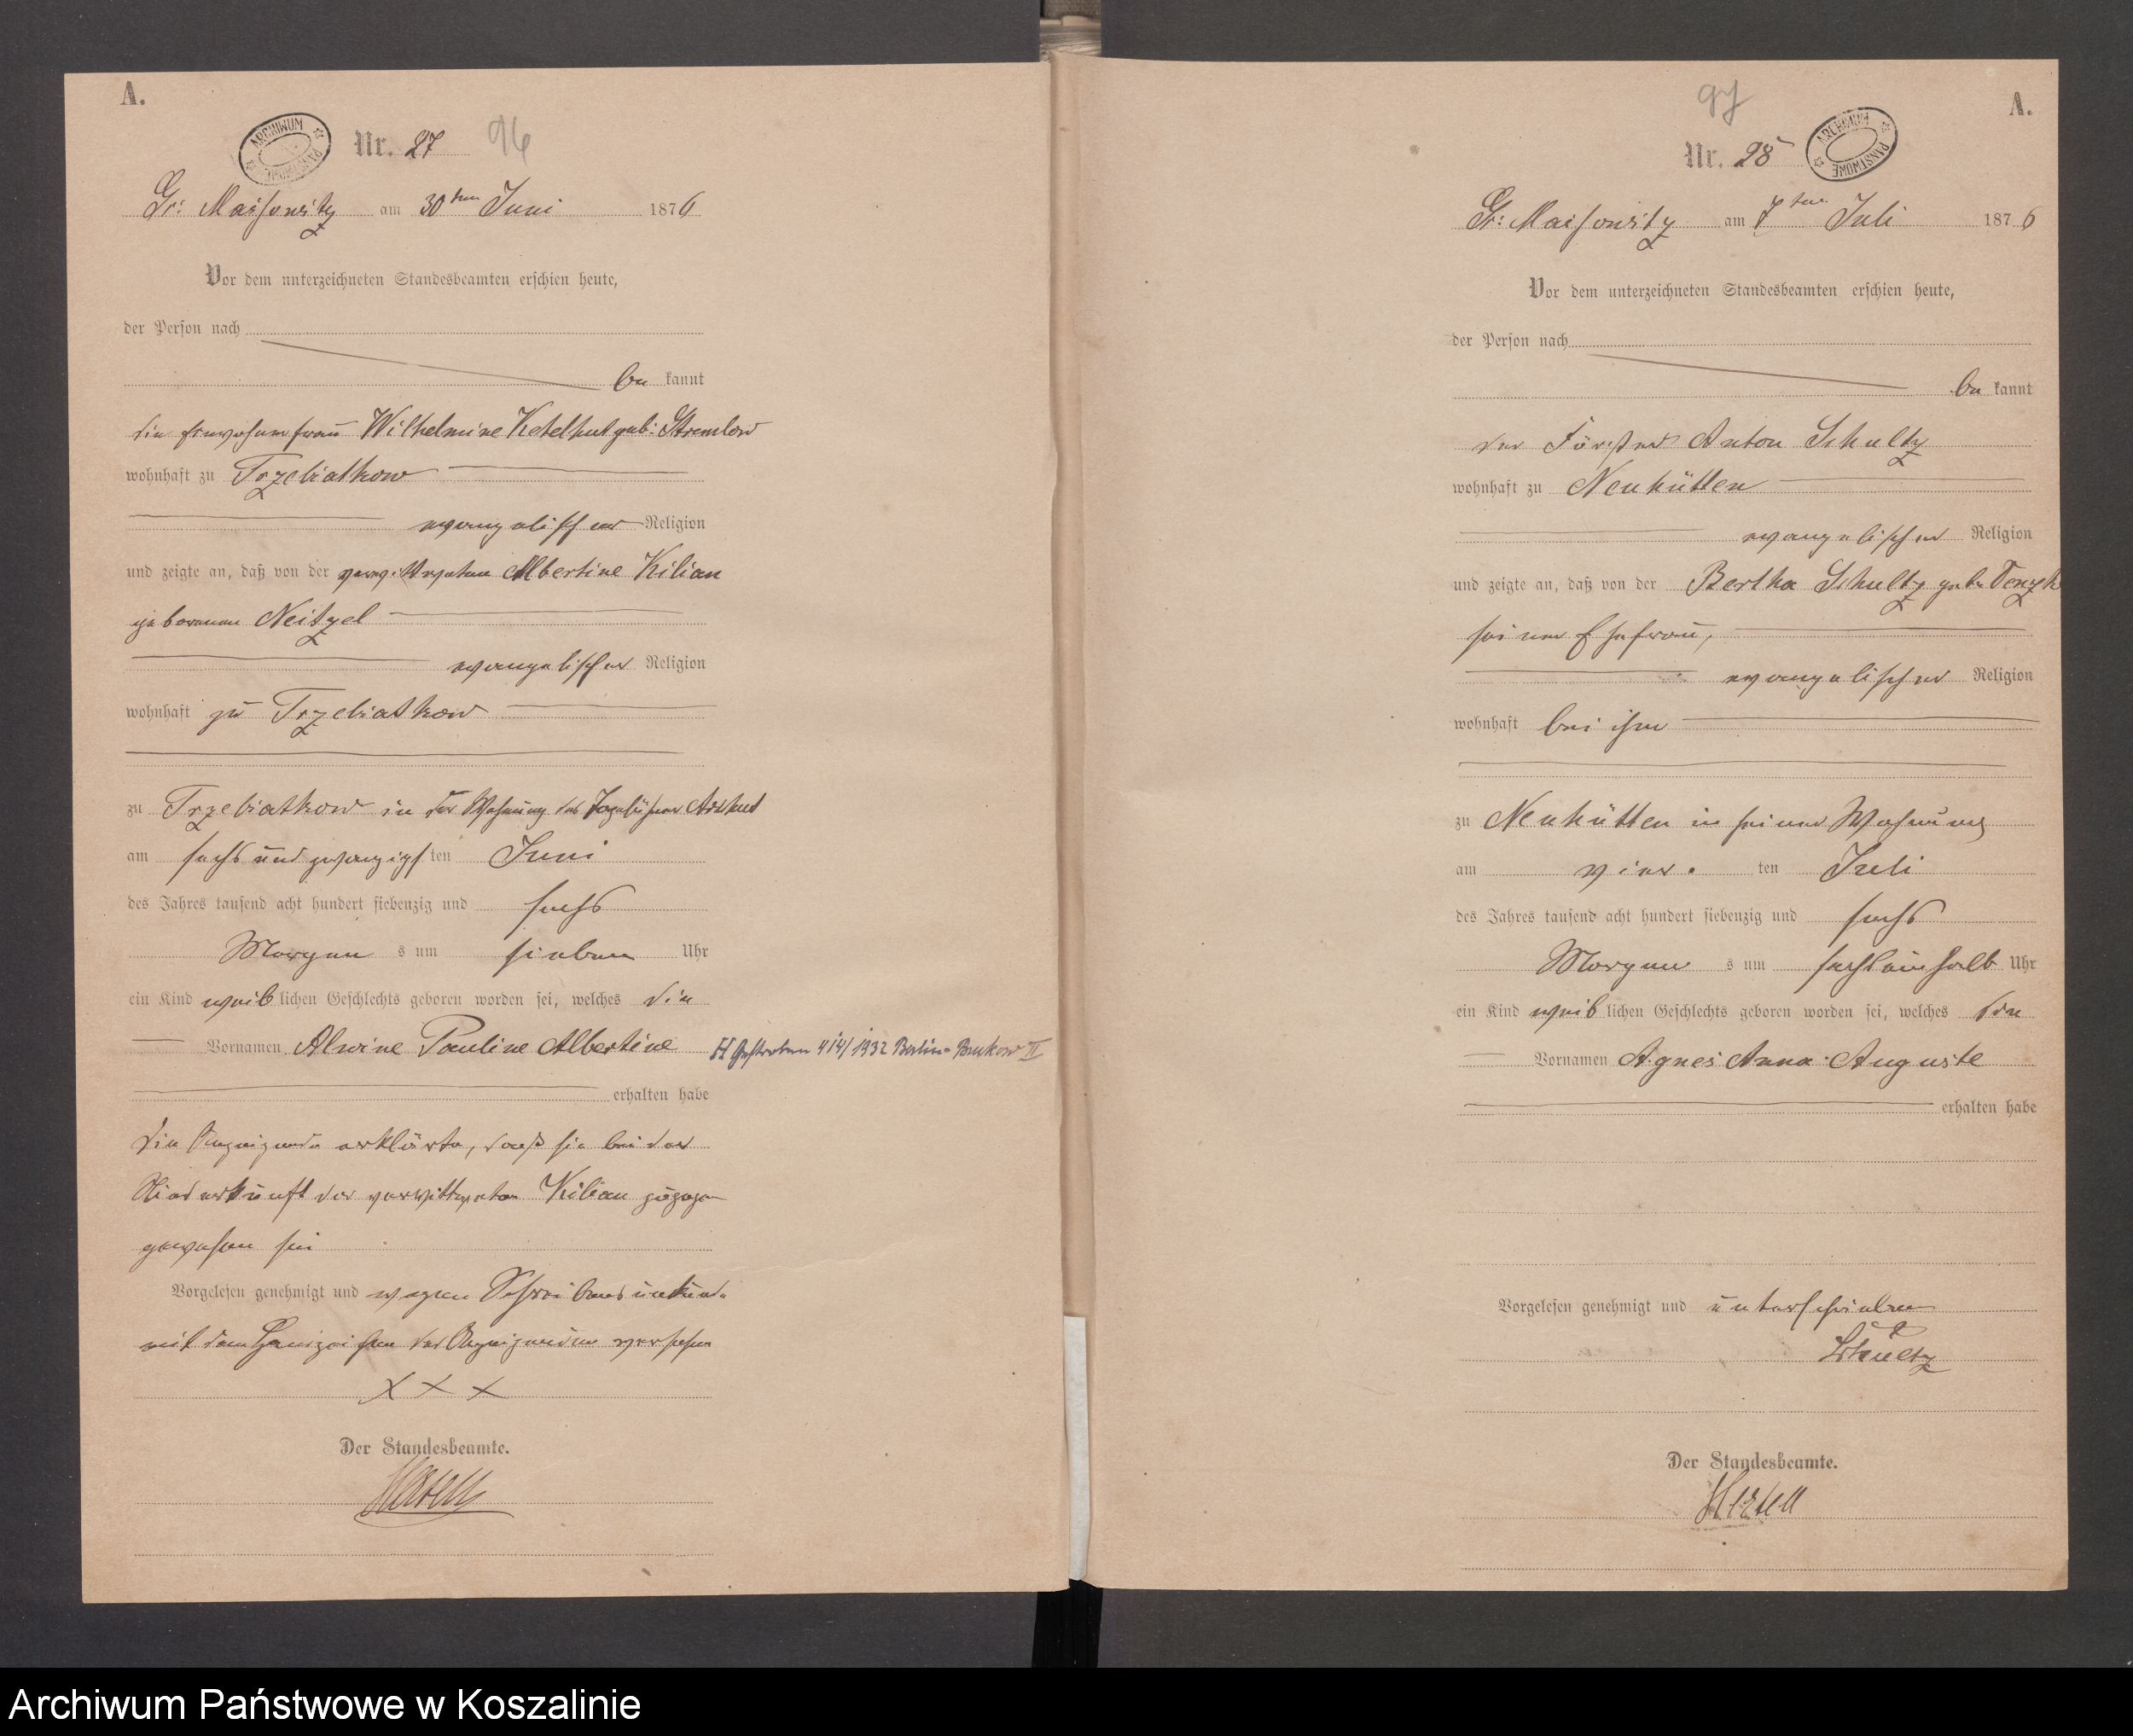 A.
ARCHIWUM PAŃSTWOWE
Nr. 27 96
Gr: Massowitz am 30ten Juni 1876
Vor dem unterzeichneten Standesbeamten erschien heute,
der Person nach
be kannt
die Hewesenfrau Wilhelmine Ketelhut geb: Stremlow
wohnhaft zu Trzebiatkow
evangelischer Religion
und zeigte an, daß von der verwittweten Albertine Kilian
geborenen Neitzel
evangelischer Religion
wohnhaft zu Trzebiatkow
zu Trzebiatkow in der Wohnung des Tagelöhner
am sechs und zwanzigsten Juni
des Jahres tausend acht hundert siebenzig und sechs
Morgen s um sieben Uhr
ein Kind weiblichen Geschlechts geboren worden sei, welches die
Vornamen Alwine Pauline Albertine H Gestorben 414/1932 Berlin-Bukow II
erhalten habe
die Anzeigende erklärte, daß sie bei der
Niederkunft der verwittweten Kilian zugegen
gewesen sei
Vorgelesen genehmigt und wegen Schreibensunkunde
mit dem Handzeichen der Anzeigenden versehen
X X X
Der Standesbeamte.
Hertell
97
A.
Nr. 28
ARCHIWUM PAŃSTWOWE
Gr: Massowitz am 7ten Juli 1876
Vor dem unterzeichneten Standesbeamten erschien heute,
der Person nach
be kannt
der Förster Anton Schultz
wohnhaft zu Neuhütten
evangelischer Religion
und zeigte an, daß von der Bertha Schultz geb:
seiner Ehefrau,
evangelischer Religion
wohnhaft bei ihm
zu Neuhütten in seiner Wohnung
am vier. ten Juli
des Jahres tausend acht hundert siebenzig und sechs
Morgen s um sechseinhalb Uhr
ein Kind weiblichen Geschlechts geboren worden sei, welches die
Vornamen Agnes Anna Auguste
erhalten habe
Vorgelesen genehmigt und unterschrieben
Schultz
Der Standesbeamte.
Hertell
Archiwum Państwowe w Koszalinie